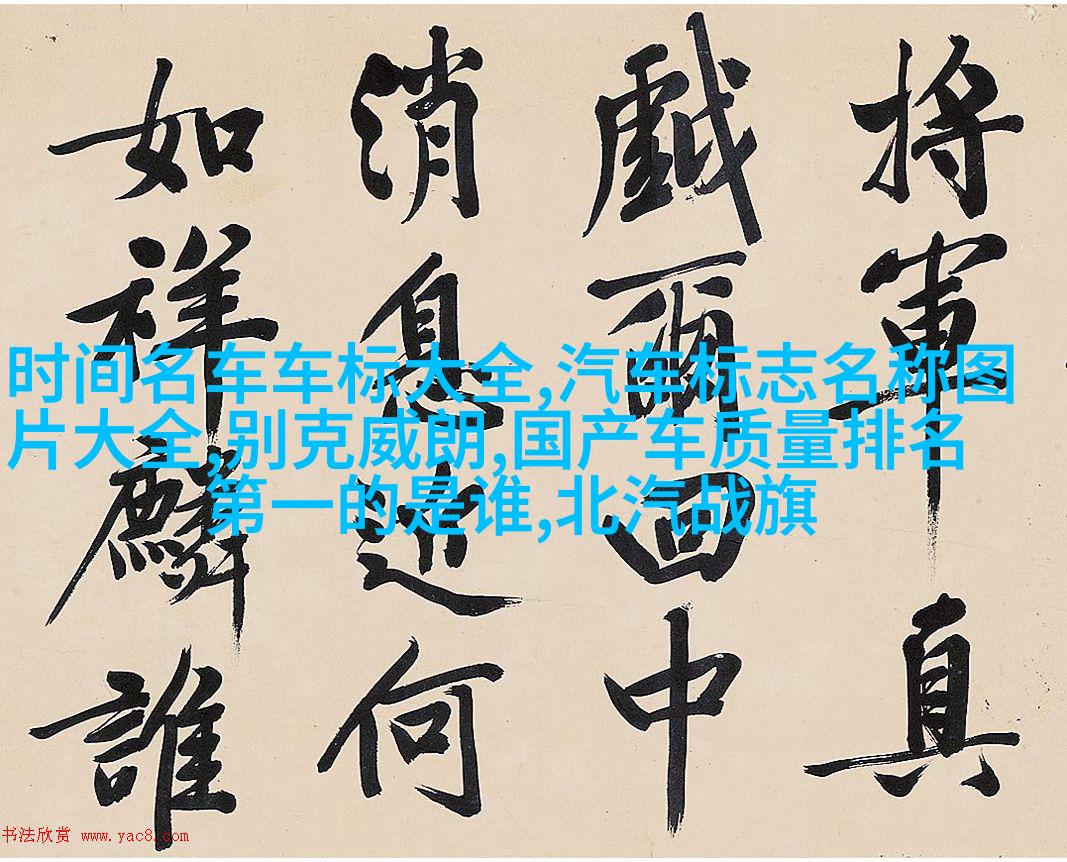 将軍真
戯回中
消息近何
如祥麟誰
时间名车车标大全,汽车标志名称图
片大全,别克威朗,国产车质量排名
第一的是谁,北汽战旗
书法欣赏 www.yac8.com